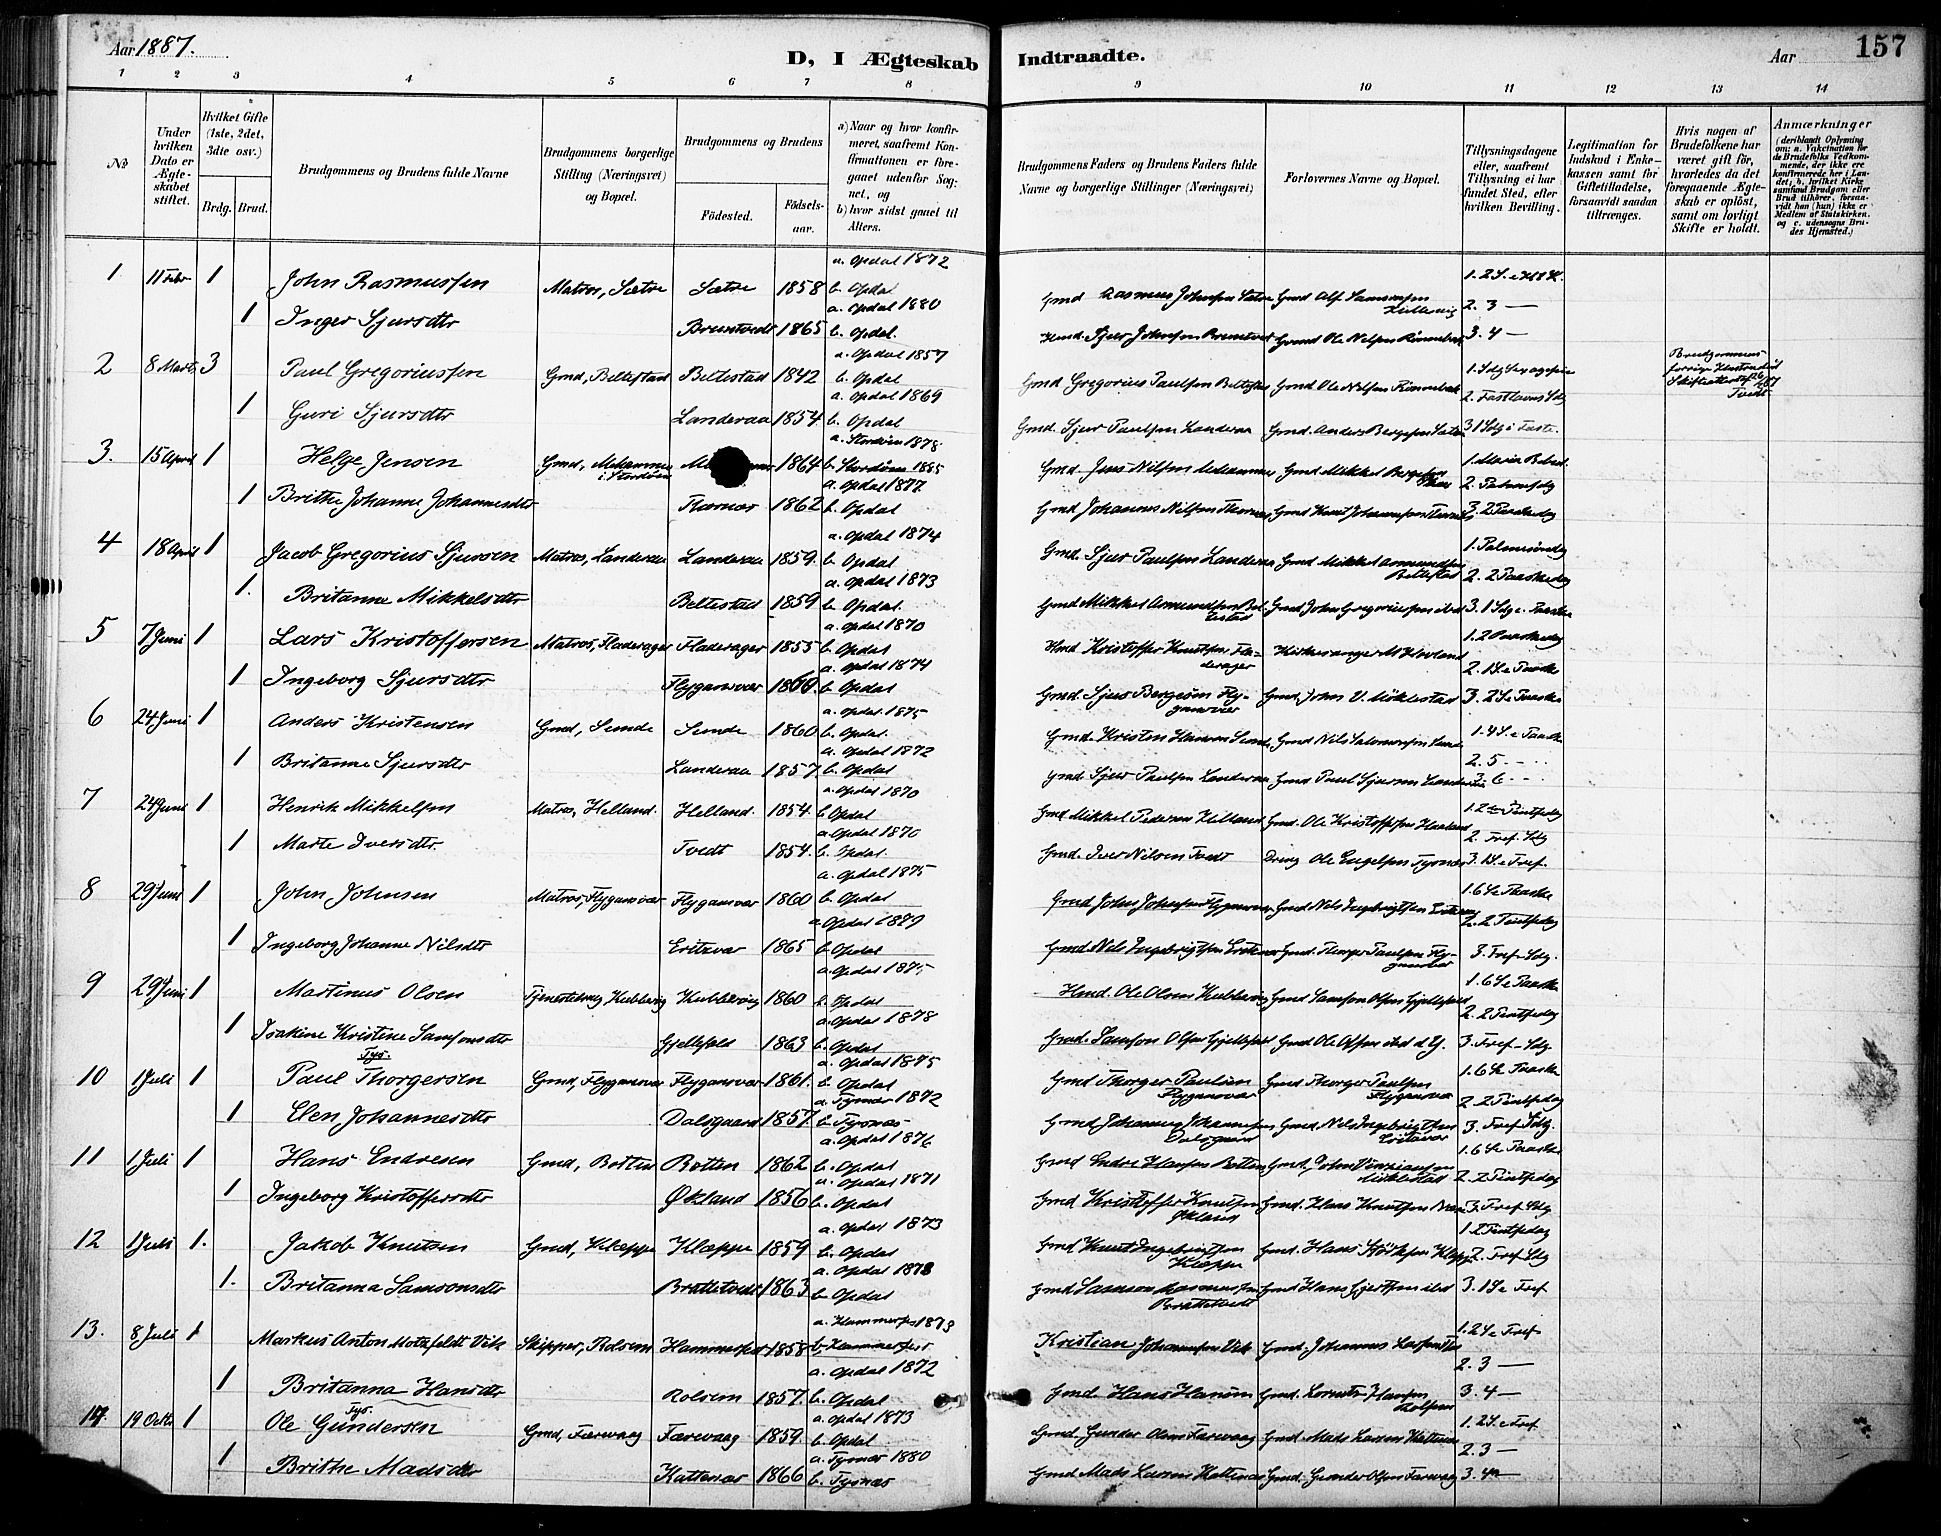 Aar 1887.
D, I Ægteskab Indtraadte.
Aar 157
1 2 3 4 5 6 7 8 9 10 11 12 13 14
No
Under hvilken Dato er Ægteskabet stiftet.
Hvilket Gifte (1ste, 2det, 3dte osv.)
Brdg. Brud.
Brudgommens og Brudens fulde Navne
Brudgommens borgerlige Stilling (Næringsvei) og Bopæl.
Brudgommens og Brudens
Fødested. Fødselsaar.
a) Naar og hvor konfirmeret, saafremt Konfirmationen er foregaaet udenfor Sognet, og
b) hvor sidst gaael til Alters.
Brudgommens Faders og Brudens Faders fulde Navne og borgerlige Stillinger (Næringsvei)
Forlovernes Navne og Bopæl.
Tillysningsdagene eller, saafremt Tillysning ei har fundet Sted, efter hvilken Bevilling.
Legitimation for Indskud i Enkekassen samt for Giftetilladelse, forsaavidt saadan tiltrænges.
Hvis nogen af Brudefolkene har været gift før, hvorledes da det foregaaende Ægteskab er opløst, samt om lovligt Skifte er holdt.
Anmærkninger (deriblandt Oplysning om: a. Vakcination for de Brudefolks Vedkommende, der ikke ere konfirmerede her i Landet; b. hvilket Kirkesamfund Brudgom eller Brud tilhører, forsaavidt han (hun) ikke er Medlem af Statskirken, og c. udensogns Brudes Hjemsted.)
1 11 Febr 1 John Rasmussen Matros, Sætre Sætre 1858 a. Opdal 1872 b. Opdal Gmd Rasmus Johnsen Sætre Gmd Alf Samsonsen
1 Inger Sjursdtr 1865 a. Opdal 1880 b. Opdal. Gmd Ole Nilsen 2. 3 — 3. 4 —
2 8 Marts 3 Paul Gregoriussen Gmd, Beltestad Beltestad 1842 a. Opdal 1857 b. Opdal Gmd Gregorius Paulsen Beltestad Gmd Ole Nilsen
1 Guri Sjursdtr Landeraa 1854 a. Opdal 1869 b. Opdal Gmd. Sjur Paulsen Landeraa Gmd. Anders 2. Fastlavns Sdg 3 1 Sdg i Faste.
3. 15 April 1 Helge Jensen Gmd, i Stordøen 1864 a. Stordøen 1878 b. Stordøen 1885 Gmd. Jens Nilsen Gmd Mikkel 1. Maria Bebud.
1 Brithe Johanne Johannesdtr 1862 a. Opdal 1877 b. Opdal Gmd Johannes Nilsen Gmd Knut Johannesen 2. Palmesdg 3. 2 Paaskedag
4 18 April 1 Jacob Gregorius Sjursen Matros, Landeraa Landeraa 1859. a. Opdal 1874 b. Opdal Gmd. Sjur Paulsen Landeraa Gmd Mikkel Beltestad 1. Palmesøndag
1. Britanna Mikkelsdtr Beltestad 1859 a. Opdal 1873 b. Opdal. Gmd Mikkel Beltestad Gmd John Gregoriussen ibid 2. 2 Paaskedag 3. 1 Sdg e. Paaske
5 7 Juni 1 Lars Kristoffersen Matros, Fladerager Fladerager 1855 a. Opdal 1870 b. Opdal Hmd Kristoffer Knutsen Fladerager Kirkesanger M. Hovland 1. 2 Paaskedag
1 Ingeborg Sjursdtr Flygansvær 1860 a. Opdal 1874 b. Opdal Gmd. Sjur Bergesøn Flygansvær Gmd. John V. Møklestad 2. 1 S. e Paaske 3. 2 S. e Paaske
6 24 Juni 1 Anders Kristensen Gmd, Sunde Sunde 1860 a. Opdal. 1875 b. Opdal. Gmd. Kristen Hansen Sunde Gmd Nils Salomonsen Sunde 1. 4 S. e Paaske
1 Britanna Sjursdtr Landeraa 1857 a. Opdal 1872 b. Opdal Gmd Sjur Paulsen Landeraa Gmd Paul Sjursen Landeraa 2. 5 - 3. 6 -
7 24 Juni 1 Henrik Mikkelsen Matros, Helland. Helland. 1854. a. Opdal 1870 b. Opdal Gmd Mikkel Pedersen Helland Gmd. Ole Kristoffersen 1. 2 Pintsedag
1 Marte Iversdtr. Tvedt 1854. a. Opdal 1870 b. Opdal. Gmd. Iver Nilsen Tvedt Dreng Ole Engelsen Tysnæs 2. Tref. Sdg 3. 1 S. e Tref.
8 29 Juni 1 John Johnsen Matros, Flygansvær Flygansvær 1860 a. Opdal 1875 b. Opdal Gmd John Johnsen Flygansvær Gmd Nils Ingebrigtsen 1. 6 S. e Paaske
1 Ingeborg Johanne Nilsdtr 1865 a. Opdal 1879 b. Opdal Gmd. Nils Ingebrigtsen Gmd. Thorger Paulsen Flygansvær 2. 2 Pintsedag 3. Tref. Sdg.
9 29 Juni 1 Martinus Olsen Tjenestedreng Kubbevig Kubbevig 1860 a. Opdal 1875 b. Opdal Hmd. Ole Olsen Kubbevig Gmd Samson Olsen Gjellefald 1. 6 S. e Paaske
1 Joakine Kristine Samsonsdtr Gjellefald 1863 a. Opdal 1878 b. Opdal Gmd. Samson Olsen Gjellefald Gmd Ole Olsen ibid d. y. 2. 2 Pintsedag 3. Tref. Sdg.
Tys.
10 1 Juli 1 Paul Thorgersen Gmd, Flygansvær Flygansvær 1861. a. Opdal 1875 b. Opdal Gmd Thorger Paulsen Flygansvær Gmd Thorger Paulsen Flygansvær 1. 6 S. e Paaske
1 Elen Johannesdtr Dalsgaard 1857. a. Tysnæs 1872 b. Tysnæs Gmd Johannes Johannessen Dalsgaard Gmd. Nils Ingebrigtsen 2. 2 Pintsedag 3. Tref. Sdg.
11 1 Juli 1 Hans Endresen Gmd, Botten Botten 1862 a. Opdal 1876 b. Opdal Gmd Endre Hansen Botten Gmd, John Møklestad 1. 6 S. e Paaske
1 Ingeborg Kristoffersdtr Økland 1856 a. Opdal 1871 b. Opdal Gmd Kristoffer Knutsen Økland Gmd. Hans Knutsen 2. 2 Pintsedag 3. Tref. Sdg
12 1 Juli 1. Jakob Knutsen Gmd, Klæppe Klæppe 1859 a. Opdal 1873 b. Opdal Gmd Knut Ingebrigtsen Klæppe Gmd. Hans Klæppe 1. 2 Pintsedag 2. Tref. Sdg
1. Britanna Samsonsdtr Brattetvedt 1863 a. Opdal 1878 b. Opdal Gmd Samson Rasmussen Brattetvedt Gmd Hans Gjertsen ibid 3. 1 S. e Tref
13. 8 Juli 1 Markus Anton Motzfeldt Vik Skipper, Rolsem Hammerfest 1858 a. Hammerfest 1873 b. Hammerfest Kristian Johannessen Vik Gmd. Johannes Larsen 1. 2 S. e Tref
1 Britanna Hansdtr Rolsem 1857. a. Opdal 1872 b. Opdal Gmd. Hans Hansen Gmd. Lorents Hansen Rolsem 2. 3 — 3. 4 —
Tys.
14. 19 Octb 1 Ole Gundersen Gmd, Færevaag Færevaag 1859. a. Opdal 1873 b. Opdal Gmd. Gunder Olsen Færevaag Gmd. Mads Larsen Kattenæs 1. 2 S. e Tref
1 Brithe Madsdtr Kattenæs 1866 a. Tysnæs 1880 b. Tysnæs Gmd Mads Larsen Kattenæs Gmd. Gunder Olsen Færevaag 2. 3 — 3. 4 —